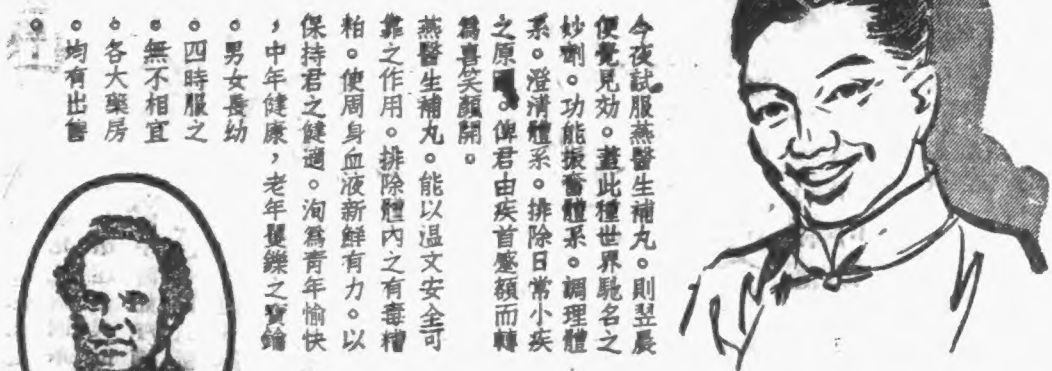 今夜試服燕醫生補丸。則翌晨
便覺見効。蓋此種世界馳名之
妙劑。功能振奮體系。調理體
系。澄清體系。排除日常小疾
之原。俾君由疾首蹙額而轉
爲喜笑顏開。
燕醫生補丸。能以温文安全可
靠之作用。排除體內之有毒糟
粕。使周身血液新鮮有力。以
保持君之健適。洵爲青年愉快
，中年健康，老年矍鑠之寶鑰
。男女長幼
。四時服之
。無不相宜
。各大藥房
。均有出售
。